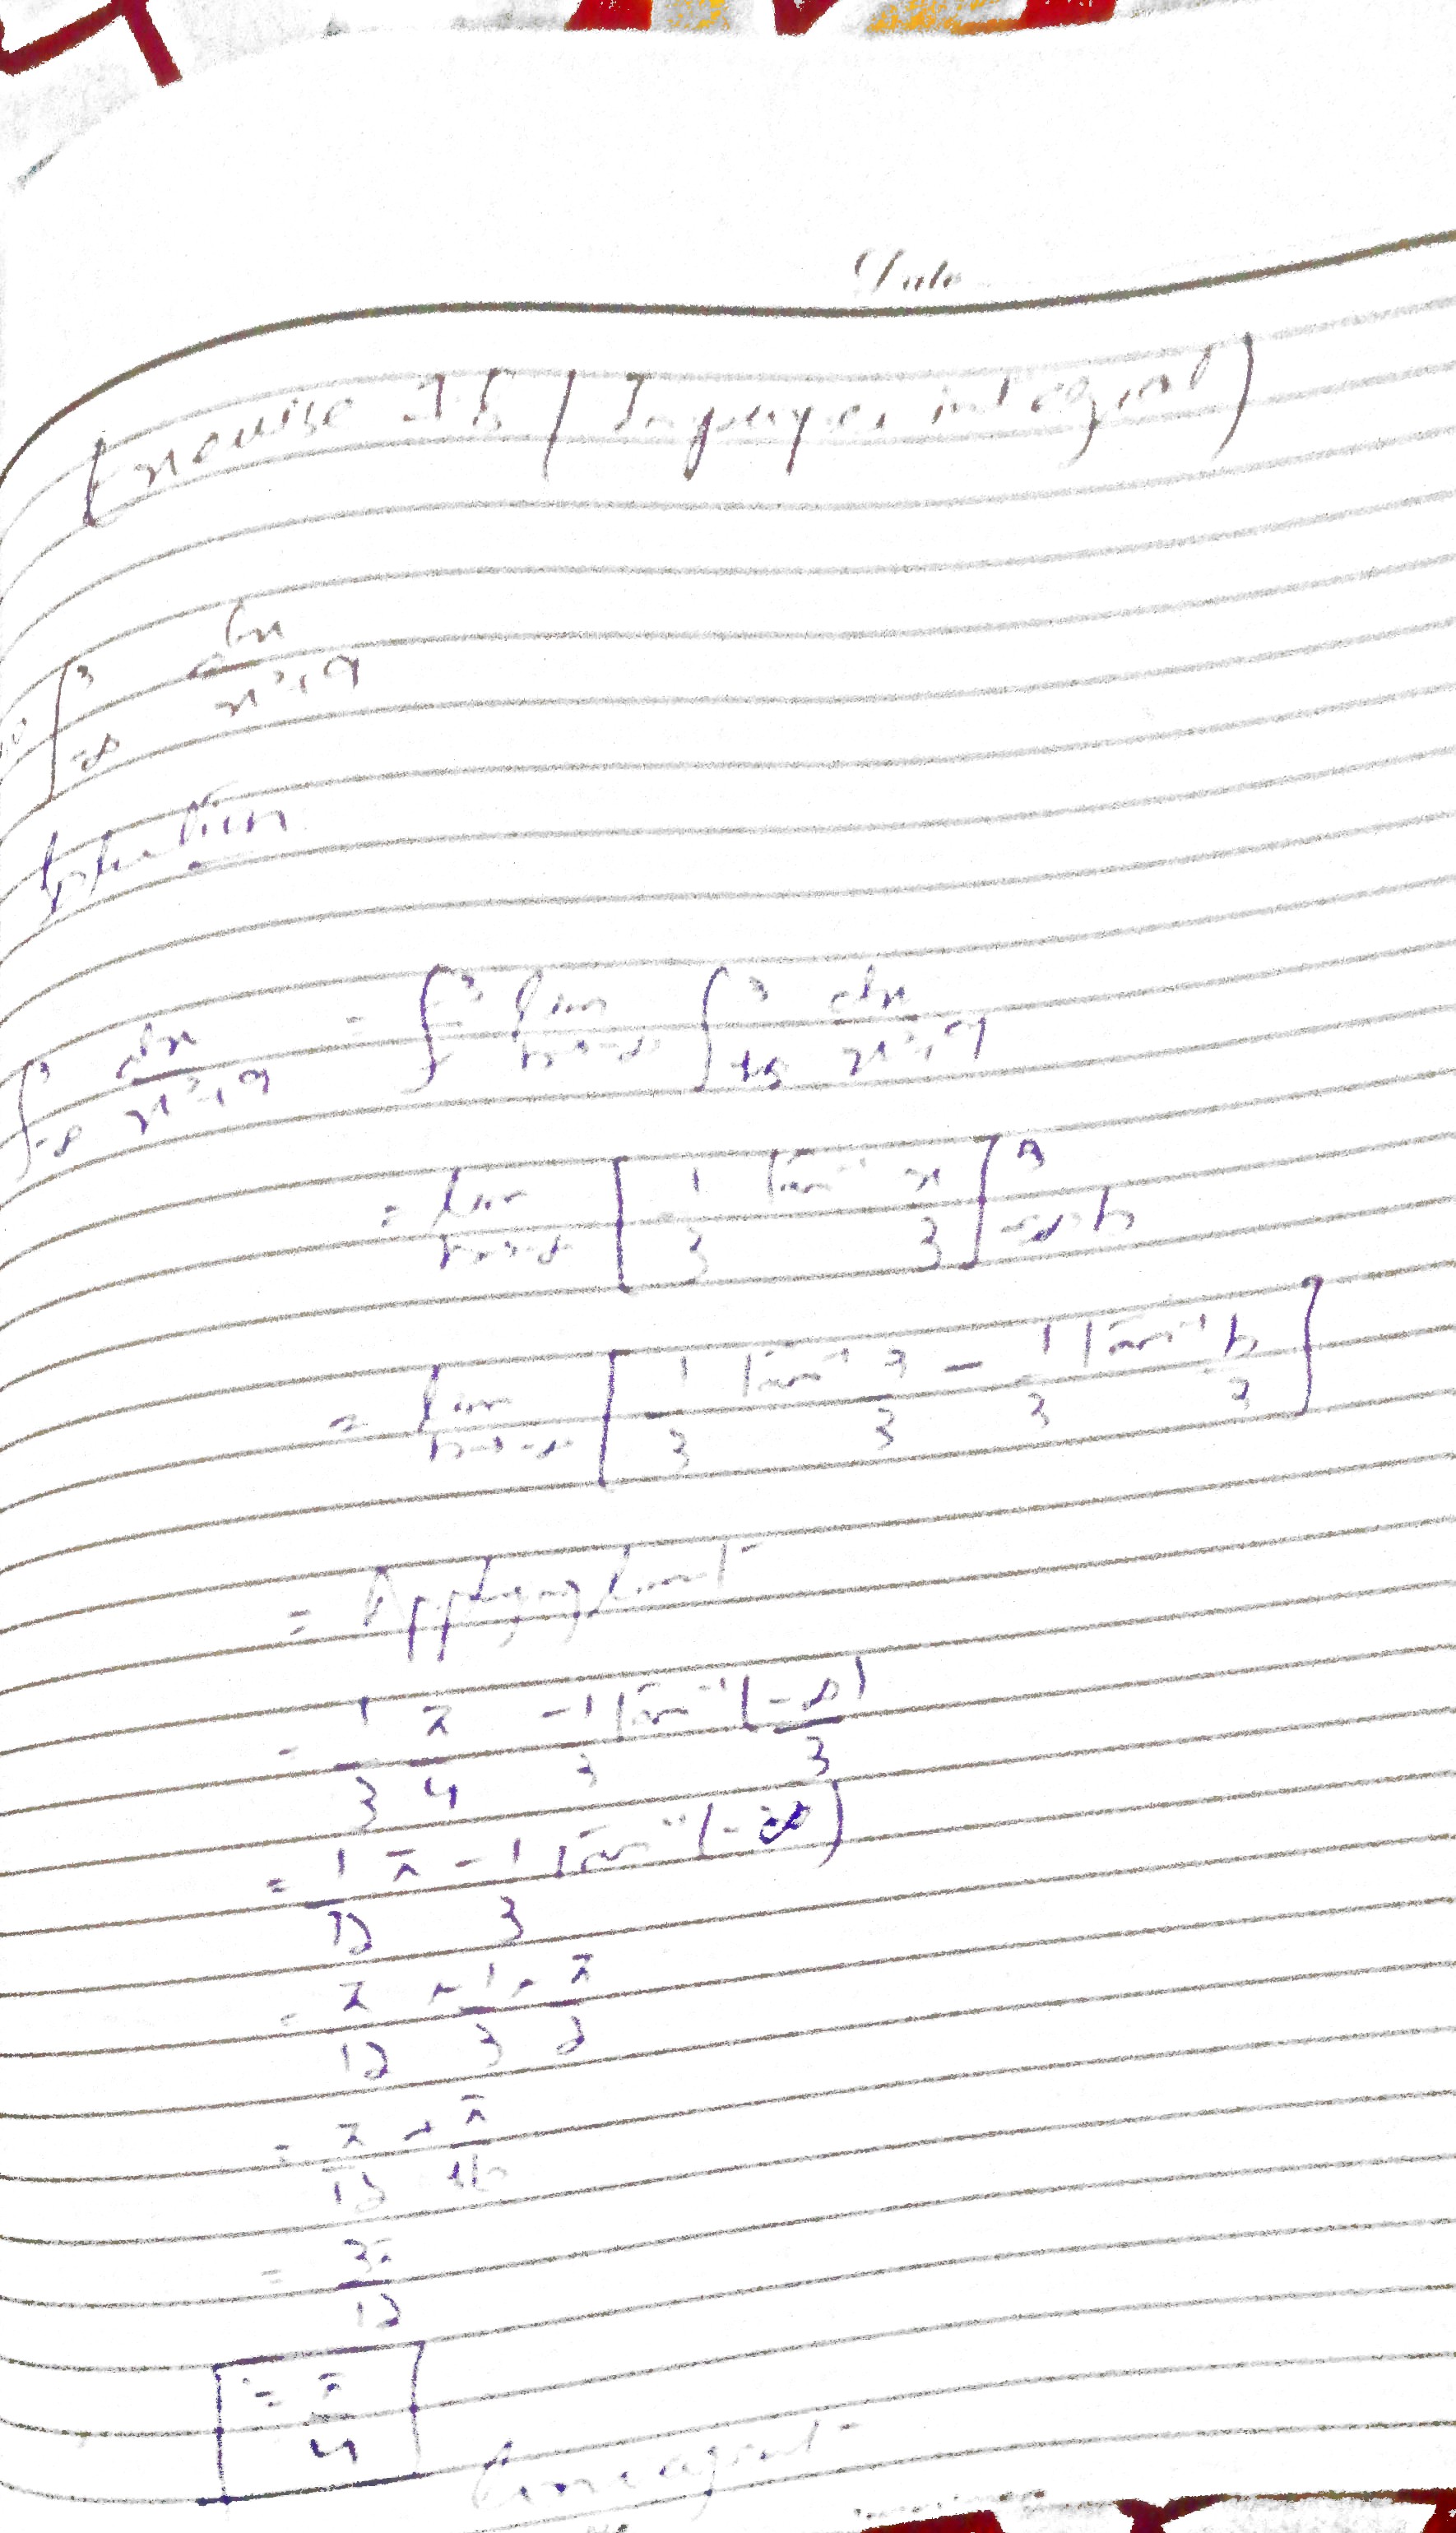 Date
Exercise 7.8 (Improper integral)
∫_{-∞}^{3} dx/(x²+9)
Solution
∫_{-∞}^{3} dx/(x²+9) = ∫^{3} lim_{b→-∞} ∫_{b}^{3} dx/(x²+9)
= lim_{b→-∞} [1/3 Tan⁻¹ x/3]^{3}_{b}
= lim_{b→-∞} [1/3 Tan⁻¹ 3/3 - 1/3 Tan⁻¹ b/3]
= Applying limit
= 1/3 π/4 - 1/3 Tan⁻¹(-∞/3)
= 1/12 π - 1/3 Tan⁻¹(-∞)
= π/12 + 1/3 · π/2
= π/12 + π/6
= 3π/12
= π/4
Convergent